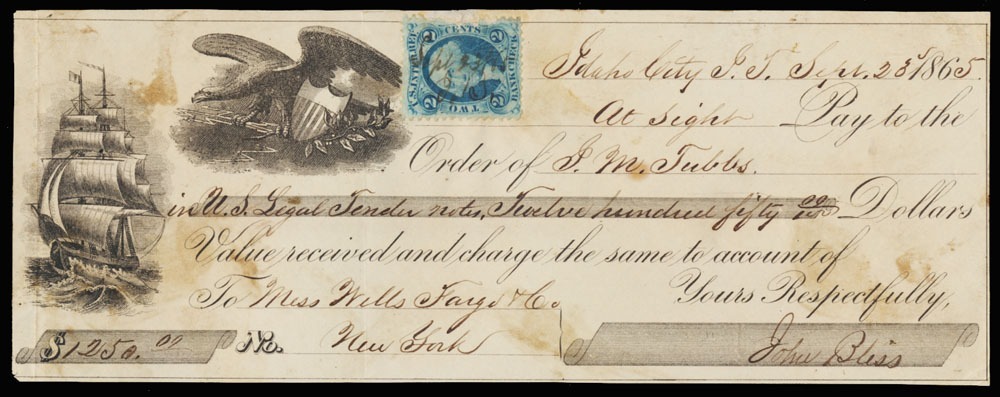 U.S. INTER. REV.
2 CENTS 2
BANK CHECK
2 TWO 2
Idaho City I. T. Sept. 23d 1865.
At Sight Pay to the
Order of I. M. Tubbs.
in U. S. Legal Tender notes, Twelve hundred fifty 00/100 Dollars
Value received and charge the same to account of
To Mess Wells Fargo & Co. Yours Respectfully,
$1250.00 No. New York John Bliss